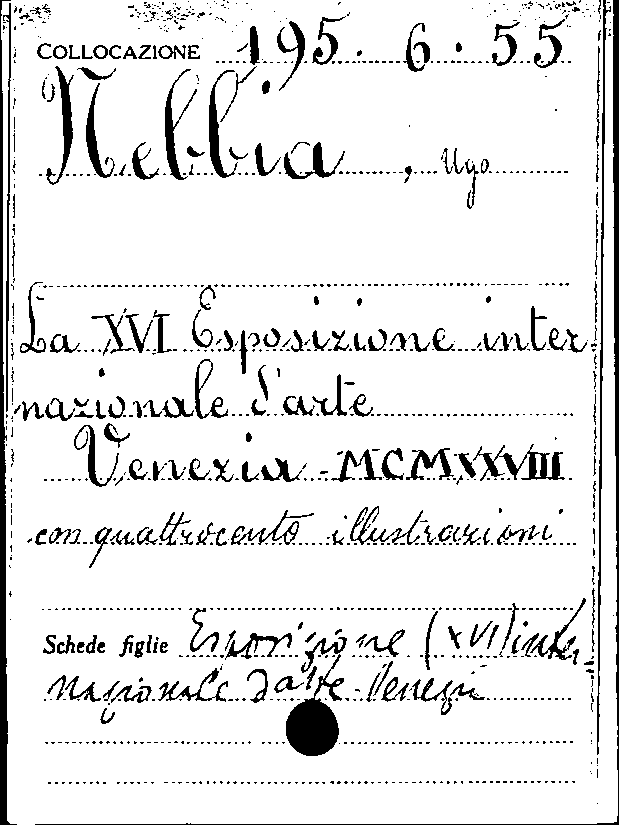 COLLOCAZIONE 195. 6. 55
Nebbia, Ugo
La XVI Esposizione inter-
nazionale d'arte
Venezia - MCMXXVIII
con quattrocento illustrazioni
Schede figlie Esposizione (XVI) inter-
nazionale d'arte - Venezia